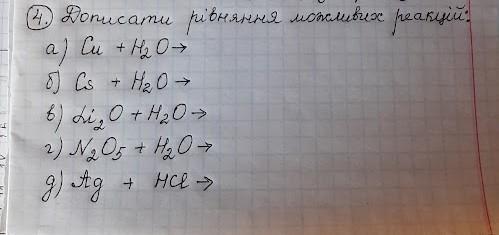 4. Дописати рівняння можливих реакцій:
а) Cu + H₂O →
б) Cs + H₂O →
в) Li₂O + H₂O →
г) N₂O₅ + H₂O →
д) Ag + HCl →